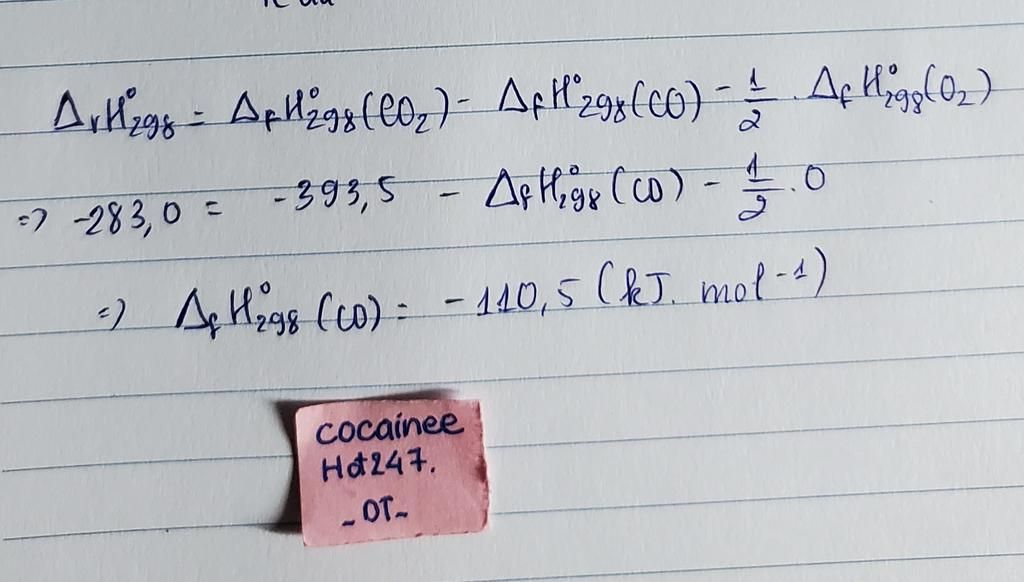 ΔrH°298 = ΔfH°298(CO2) - ΔfH°298(CO) - 1/2 . ΔfH°298(O2)
=> -283,0 = -393,5 - ΔfH°298(CO) - 1/2 . 0
=> ΔfH°298(CO) = -110,5 (kJ. mol-1)
cocainee
Hot247.
-OT-